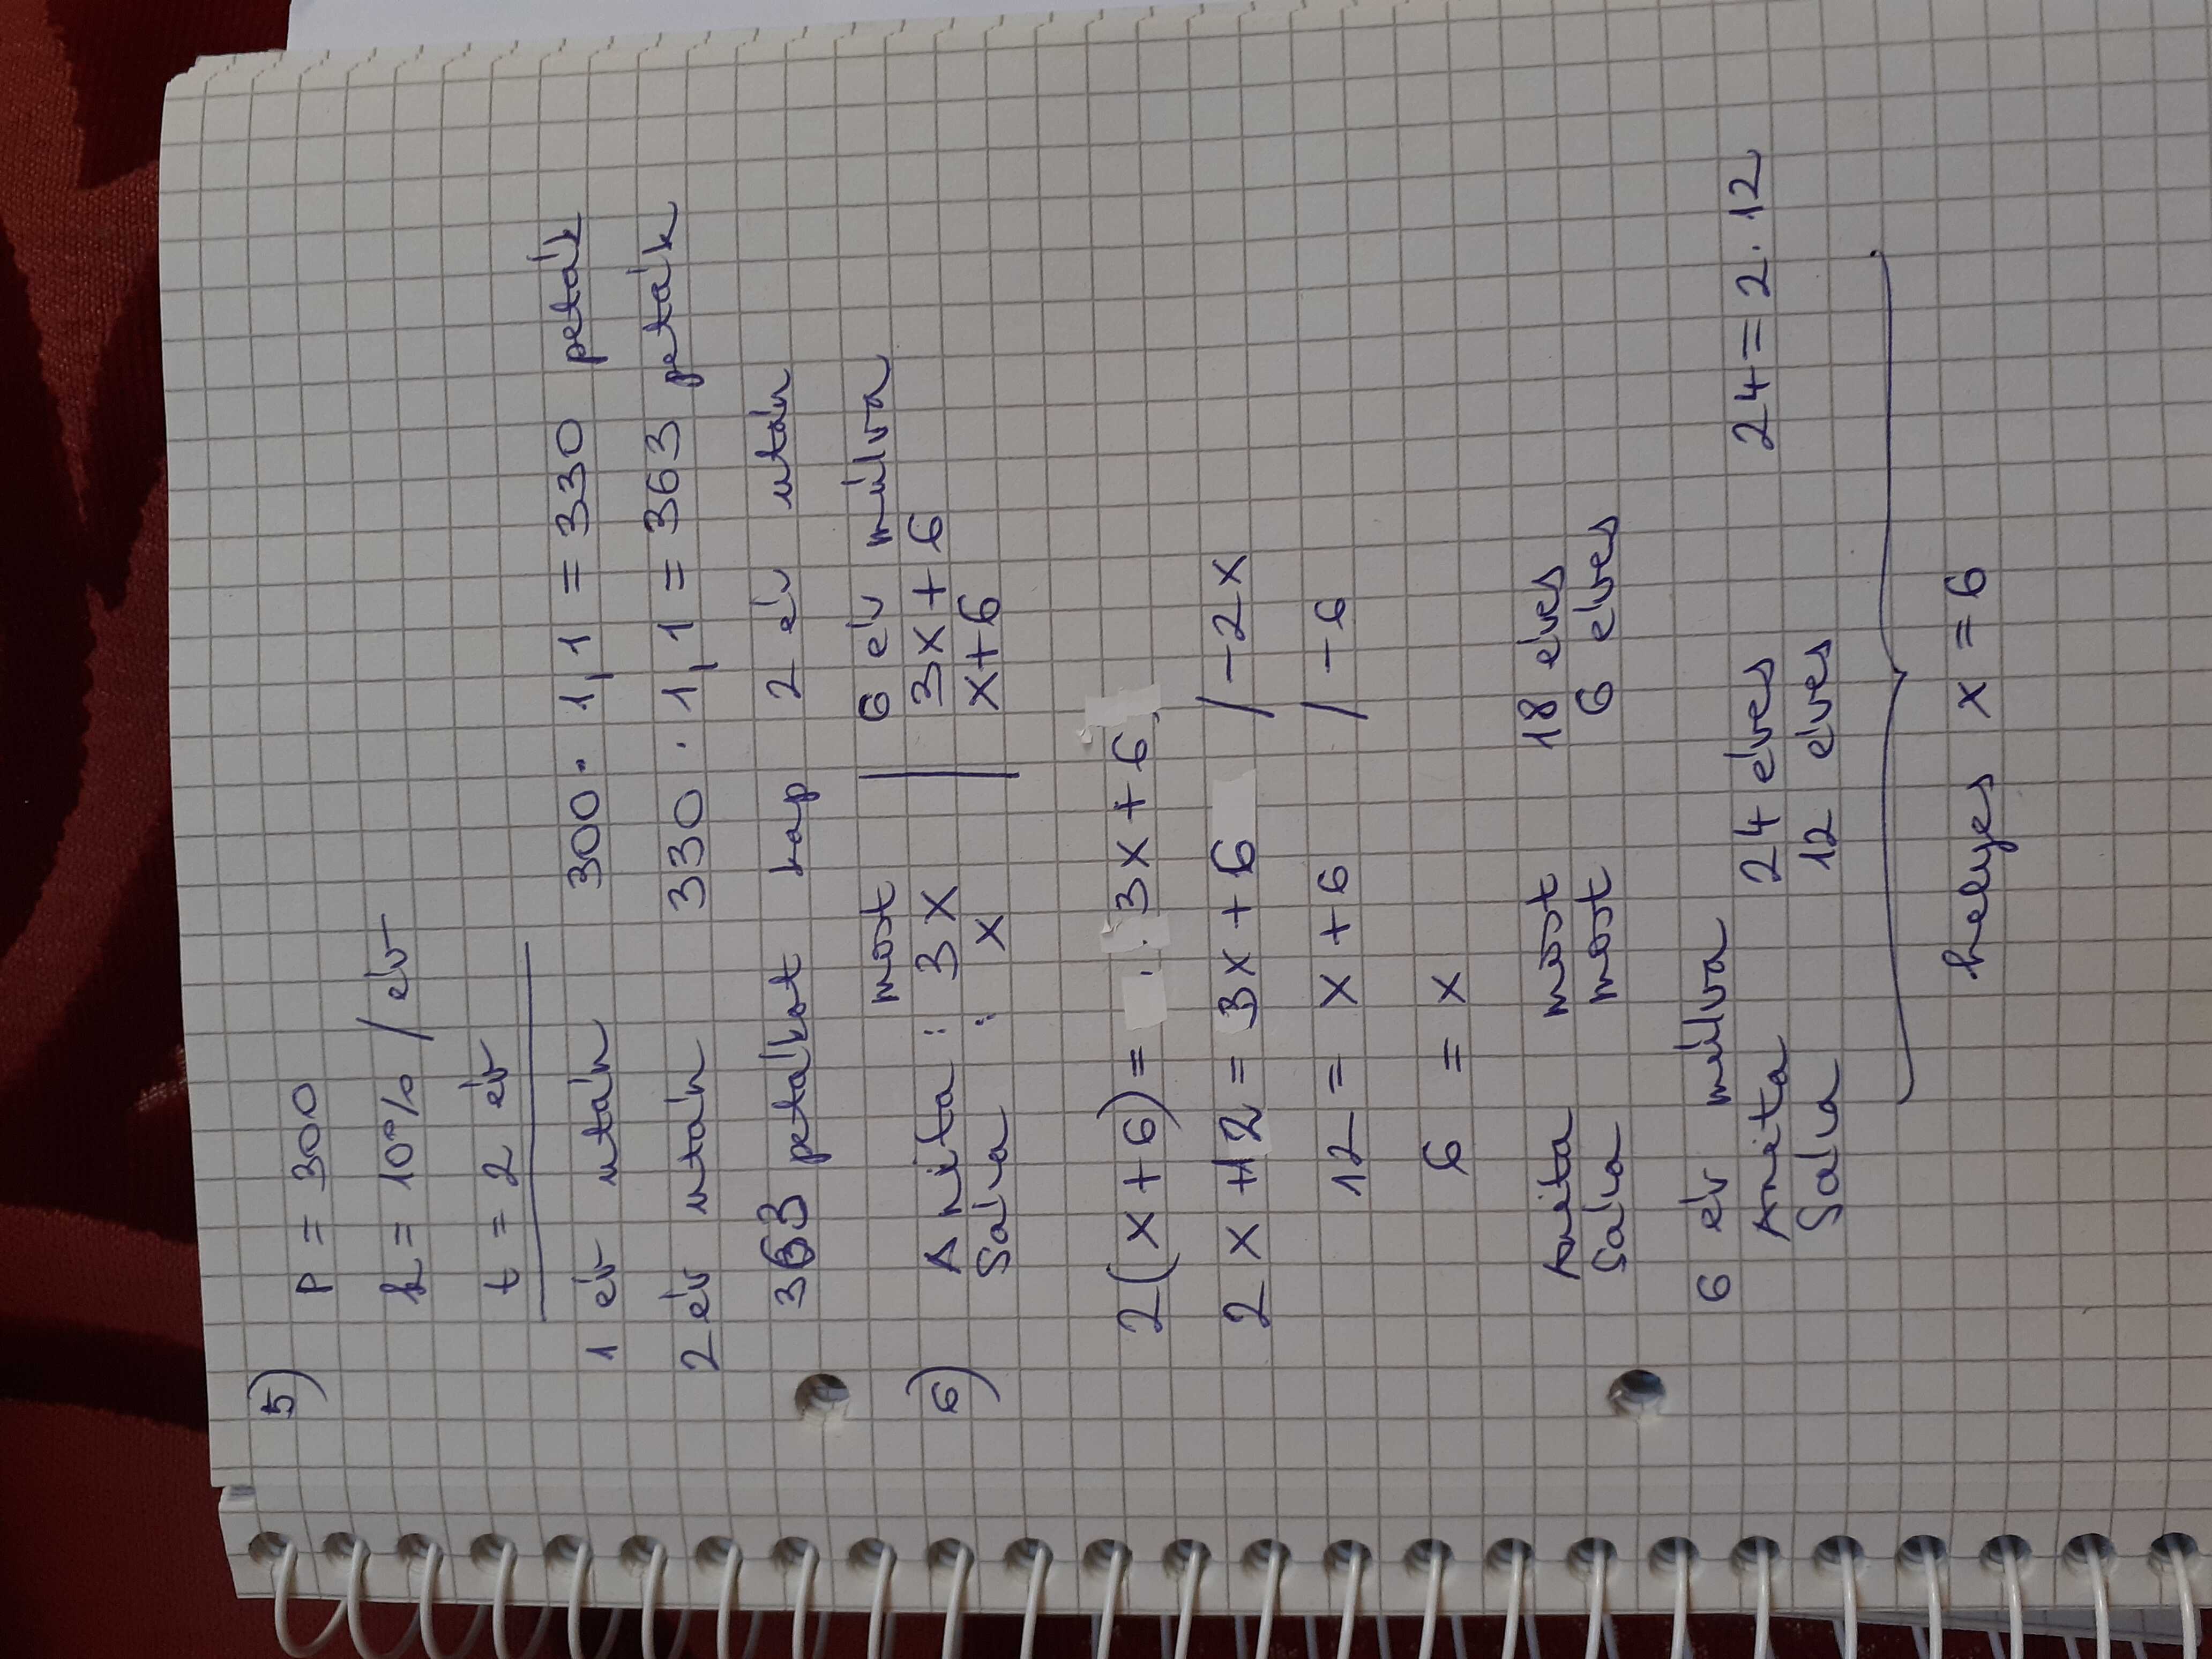 5)
P = 300
k = 10% / év
t = 2 év
1 év után 300 · 1,1 = 330 peták
2 év után 330 · 1,1 = 363 peták
363 petákot kap 2 év után
most 6 év múlva
6) Anita : 3x 3x + 6
Sára : x x + 6
2(x + 6) = 3x + 6
2x + 12 = 3x + 6 / - 2x
12 = x + 6 / - 6
6 = x
Anita most 18 éves
Sára most 6 éves
6 év múlva
Anita 24 éves 24 = 2 · 12
Sára 12 éves
helyes x = 6